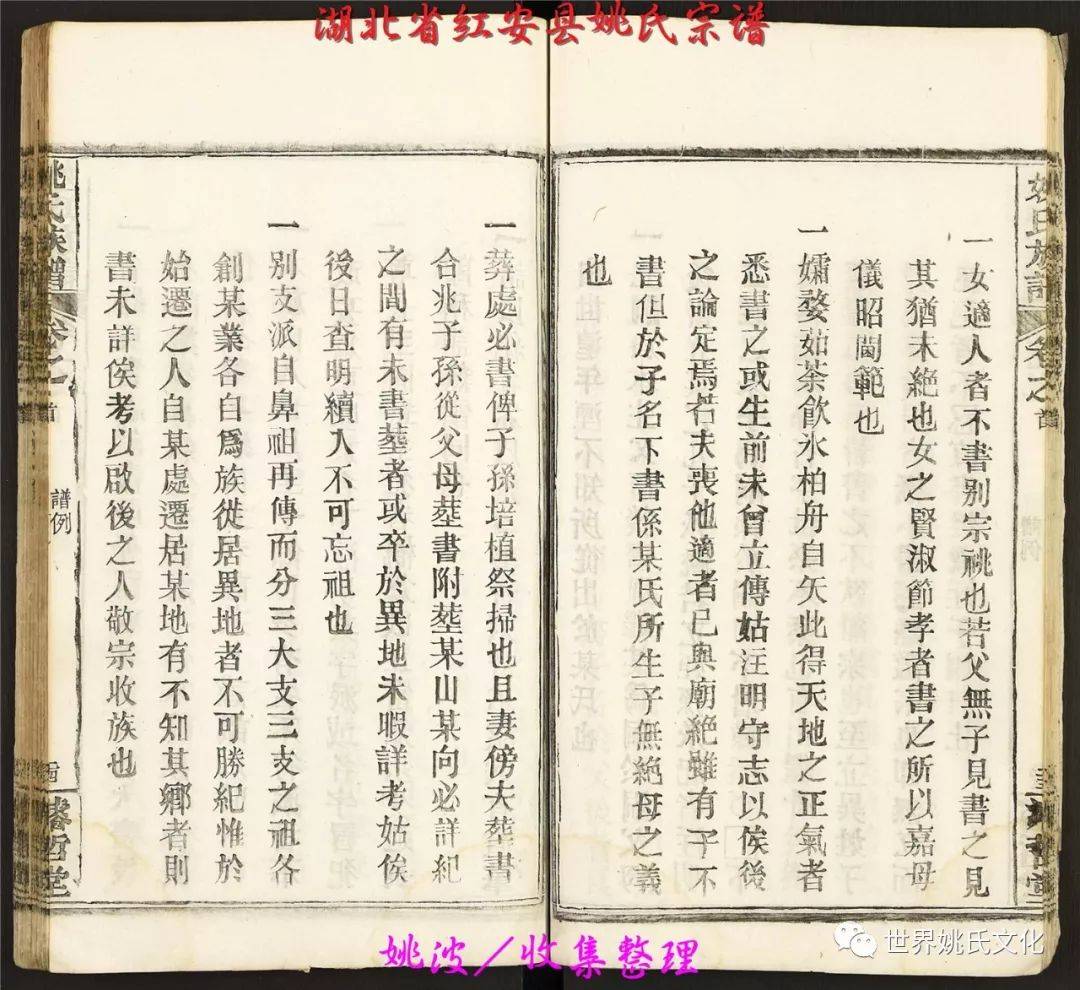 湖北省红安县姚氏宗谱
一女適人者不書別宗祧也若父無子見書之見
其猶未絶也女之賢淑節孝者書之所以嘉母
儀昭閫範也
一孀婺茹荼飮氷柏舟自矢此得天地之正氣者
悉書之或生前未曾立傳姑汪明守志以俟後
之論定焉若夫喪他適者已與廟絶雖有子不
書但於子名下書係某氏所生子無絶母之義
也
一葬處必書俾子孫培植祭掃也且妻傍夫葬書
合兆子孫從父母塟書附塟某山某向必詳紀
之間有未書塟者或卒於異地未暇詳考姑俟
後日查明續入不可忘祖也
一別支派自鼻祖再傳而分三大支三支之祖各
創某業各自爲族徙居異地者不可勝紀惟於
始遷之人自某處遷居某地有不知其鄉者則
書未詳俟考以啟後之人敬宗收族也
姚氏族譜
卷之
首
譜例
睿哲堂
姚波/收集整理
世界姚氏文化